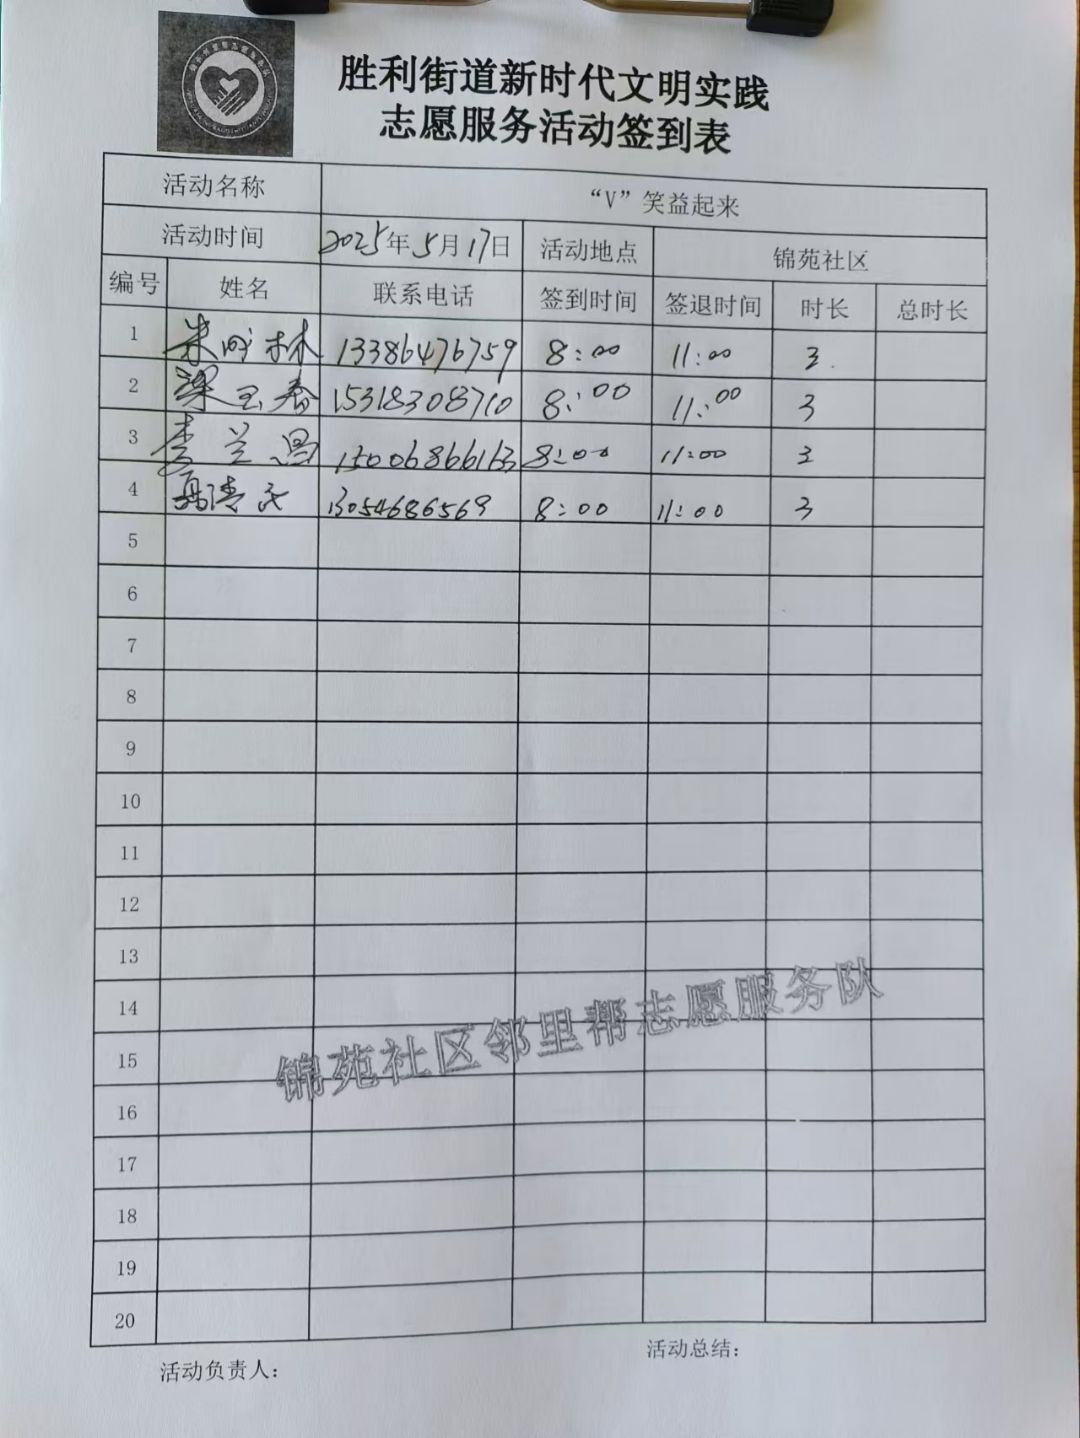 胜利街道新时代文明实践
志愿服务活动签到表
活动名称 “V”笑益起来
活动时间 2025年5月17日 活动地点 锦苑社区
编号 姓名 联系电话 签到时间 签退时间 时长 总时长
1 林 13386476759 8:00 11:00 3.
2 梁玉春 15318308710 8:00 11:00 3
3 李兰 15006866163 8:00 11:00 3
4 清 13054686569 8:00 11:00 3
5
6
7
8
9
10
11
12
13
14
15
16
17
18
19
20
锦苑社区邻里帮志愿服务队
活动负责人： 活动总结：